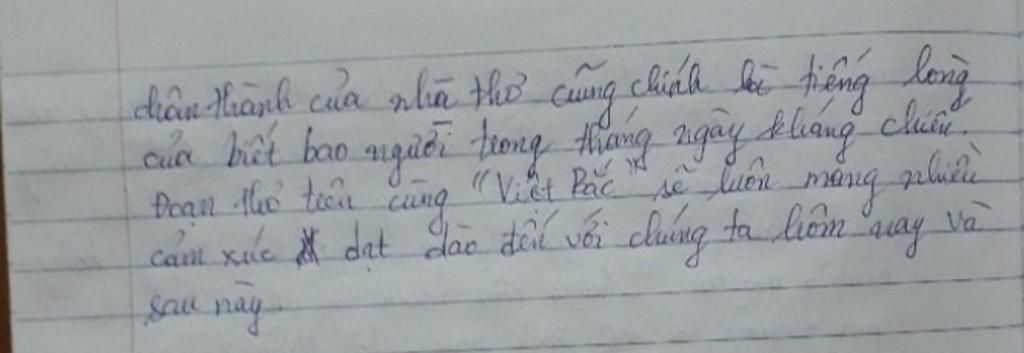 chân thành của nhà thơ cũng chính là tiếng lòng
của biết bao người trong tháng ngày kháng chiến.
Đoạn thơ trên cùng "Việt Bắc" sẽ luôn mang nhiều
cảm xúc dạt dào đến với chúng ta hôm nay và
sau này.